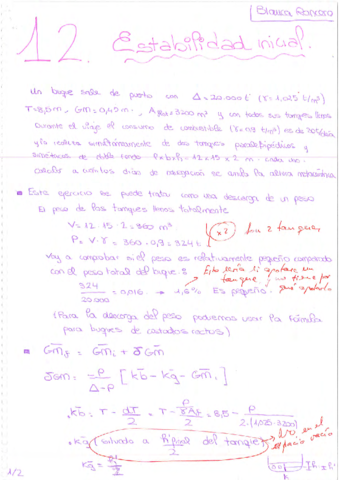 Blanca Romero
12. Estabilidad inicial.
Un buque sale de puerto con Δ = 20.000 t (γ = 1,025 t/m³)
T = 8,5 m, GM = 0,45 m, A = 3200 m² y con todos sus tanques llenos
Durante el viaje el consumo de combustible (γ = 0,9 t/m³) es de
y lo realiza simultáneamente de dos tanques paralelepipédicos y
simétricos de doble fondo l × b × h = 12 × 15 × 2 m cada uno.
Calcular a cuántos días de navegación es la altura metacéntrica
Este ejercicio se puede tratar como una descarga de un peso
El peso de los tanques llenos totalmente
V = 12 · 15 · 2 = 360 m³
P = V · γ = 360 · 0,9 = 324 t
x2
Son 2 tanques
Voy a comprobar si el peso es relativamente pequeño comparado
con el peso total del buque:
324 / 20.000 = 0,016 → 1,6% Es pequeño.
Esto sería si agotase un
tanque y no tiene por
qué agotarlo
(Para la descarga del peso podremos usar la fórmula
para buques de costados rectos)
GMf = GMi + δGM
δGM = -P / (Δ - P) [kb - kg - GMi]
kb = T - δT / 2 = T - = 8,5 - P / 2 · (1,025 · 3200)
kg (situado a del tanque)
2
en el
espacio vacío
kg =
1/2